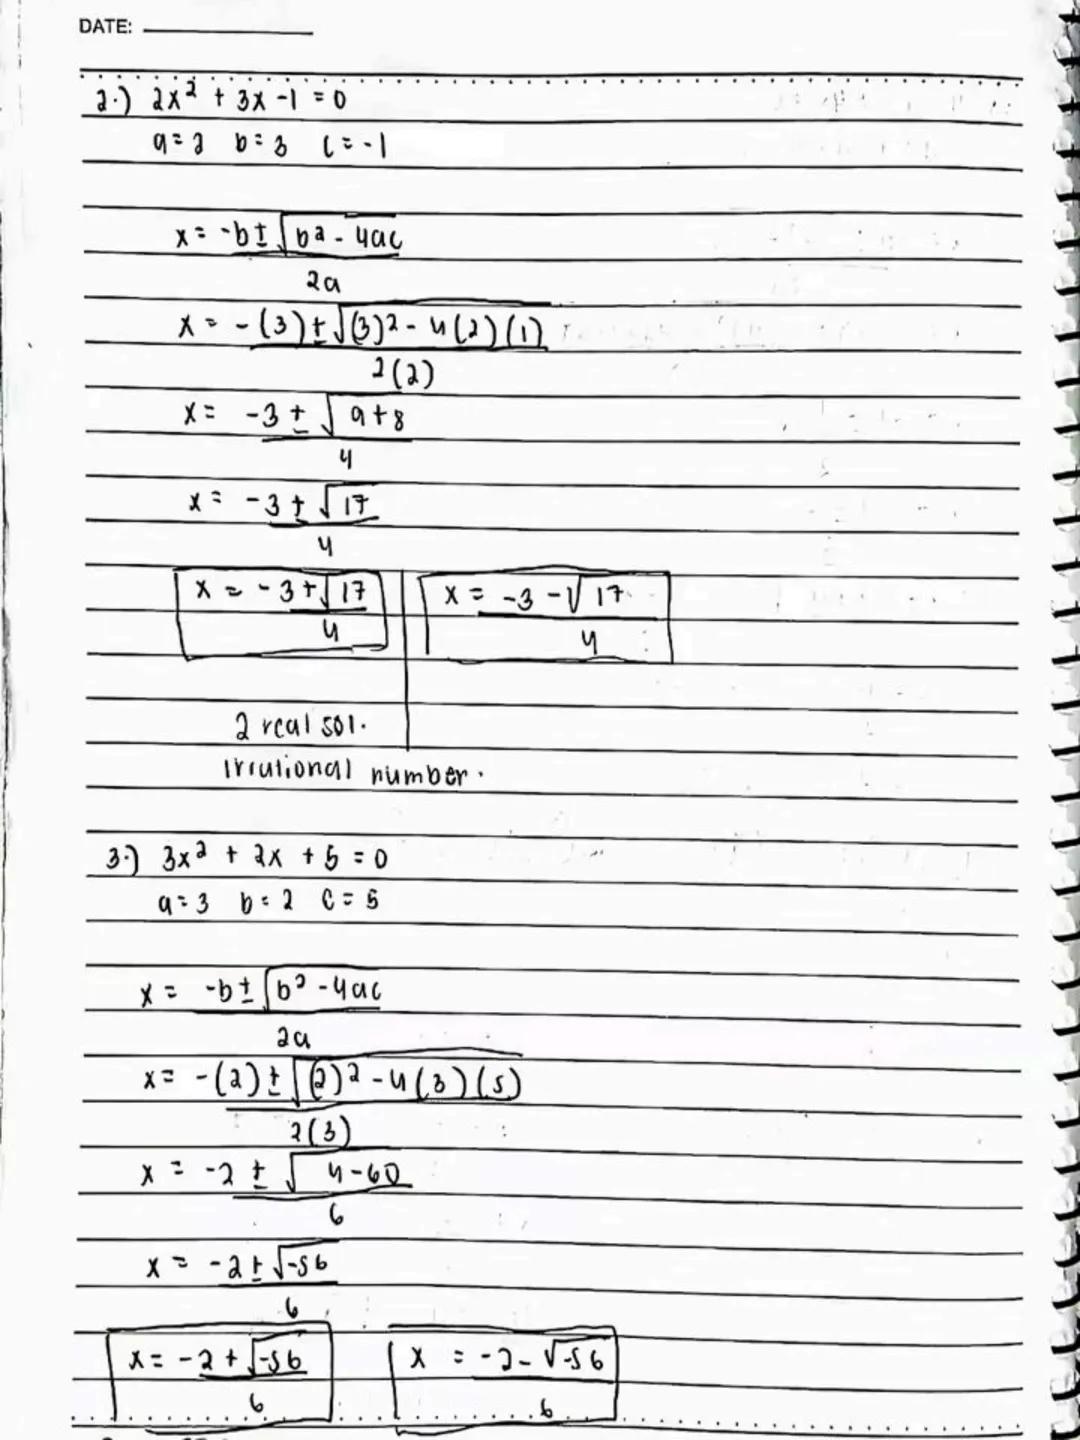 DATE:
2.) 2x² + 3x - 1 = 0
a = 2 b = 3 c = -1
x = -b ± √b² - 4ac
2a
x = -(3) ± √(3)² - 4(2)(1)
2(2)
x = -3 ± √9+8
4
x = -3 ± √17
4
x = -3 + √17 x = -3 - √17
4 4
2 real sol.
irrational number.
3.) 3x² + 2x + 5 = 0
a = 3 b = 2 c = 5
x = -b ± √b² - 4ac
2a
x = -(2) ± √(2)² - 4(3)(5)
2(3)
x = -2 ± √4-60
6
x = -2 ± √-56
6
x = -2 + √-56 x = -2 - √-56
6 6